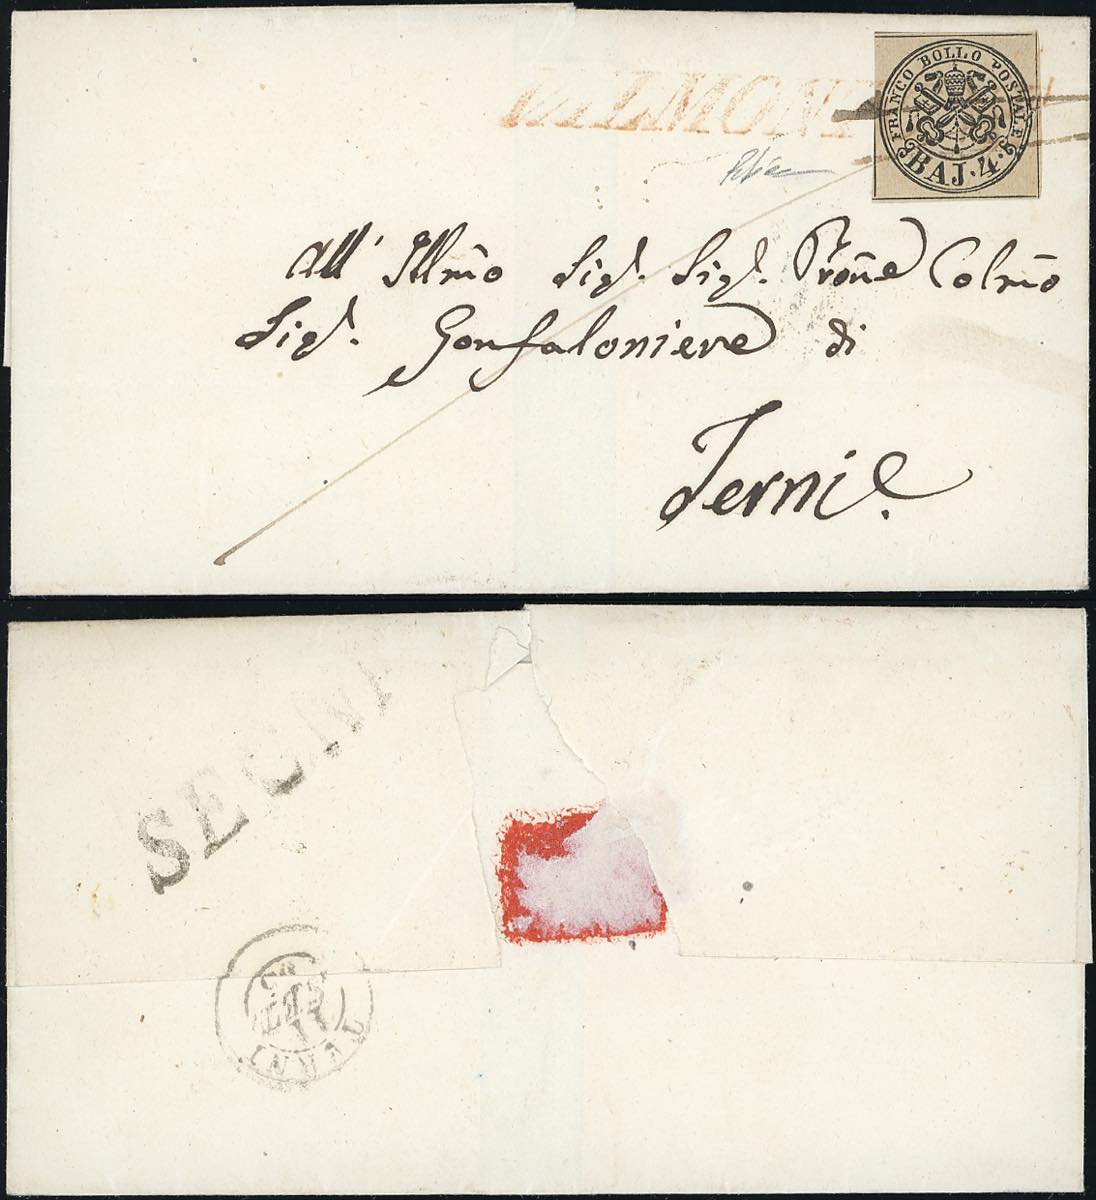 FRANCO BOLLO POSTALE
BAJ. 4.
All' Illmo Sigr. Sigr. Prone Colmo
Sigr. Gonfaloniere di
Terni
SEGNI
TERNI